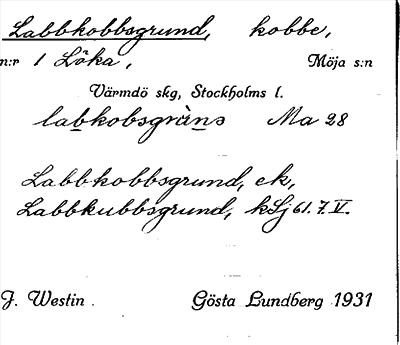 Labbkobbsgrund, kobbe,
n:r 1 Löka, Möja s:n
Värmdö skg, Stockholms l.
labkobsgràns Ma 28
Labbkobbsgrund, ek,
Labbkubbsgrund, kSj 61. 7. V.
J. Westin. Gösta Lundberg 1931